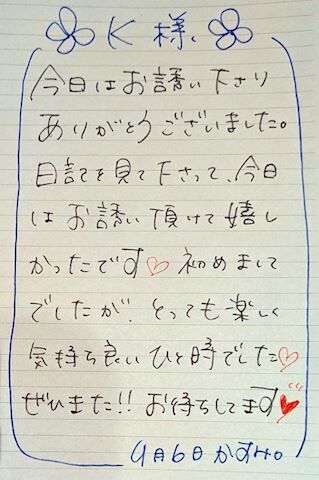 K様
今日はお誘い下さり
ありがとうございました。
日記を見て下さって、今日
はお誘い頂けて嬉し
かったです♡ 初めまして
でしたが、とっても楽しく
気持ち良いひと時でした♡
ぜひまた!! お待ちしてます♥
9月6日 かすみ。